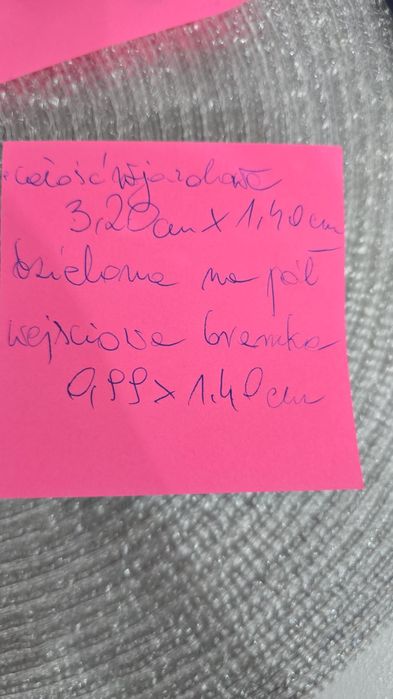 całość wjazdowa
3,20cm x 1,40cm
dzielona na pół
wejściowa bramka
0,99 x 1.40cm